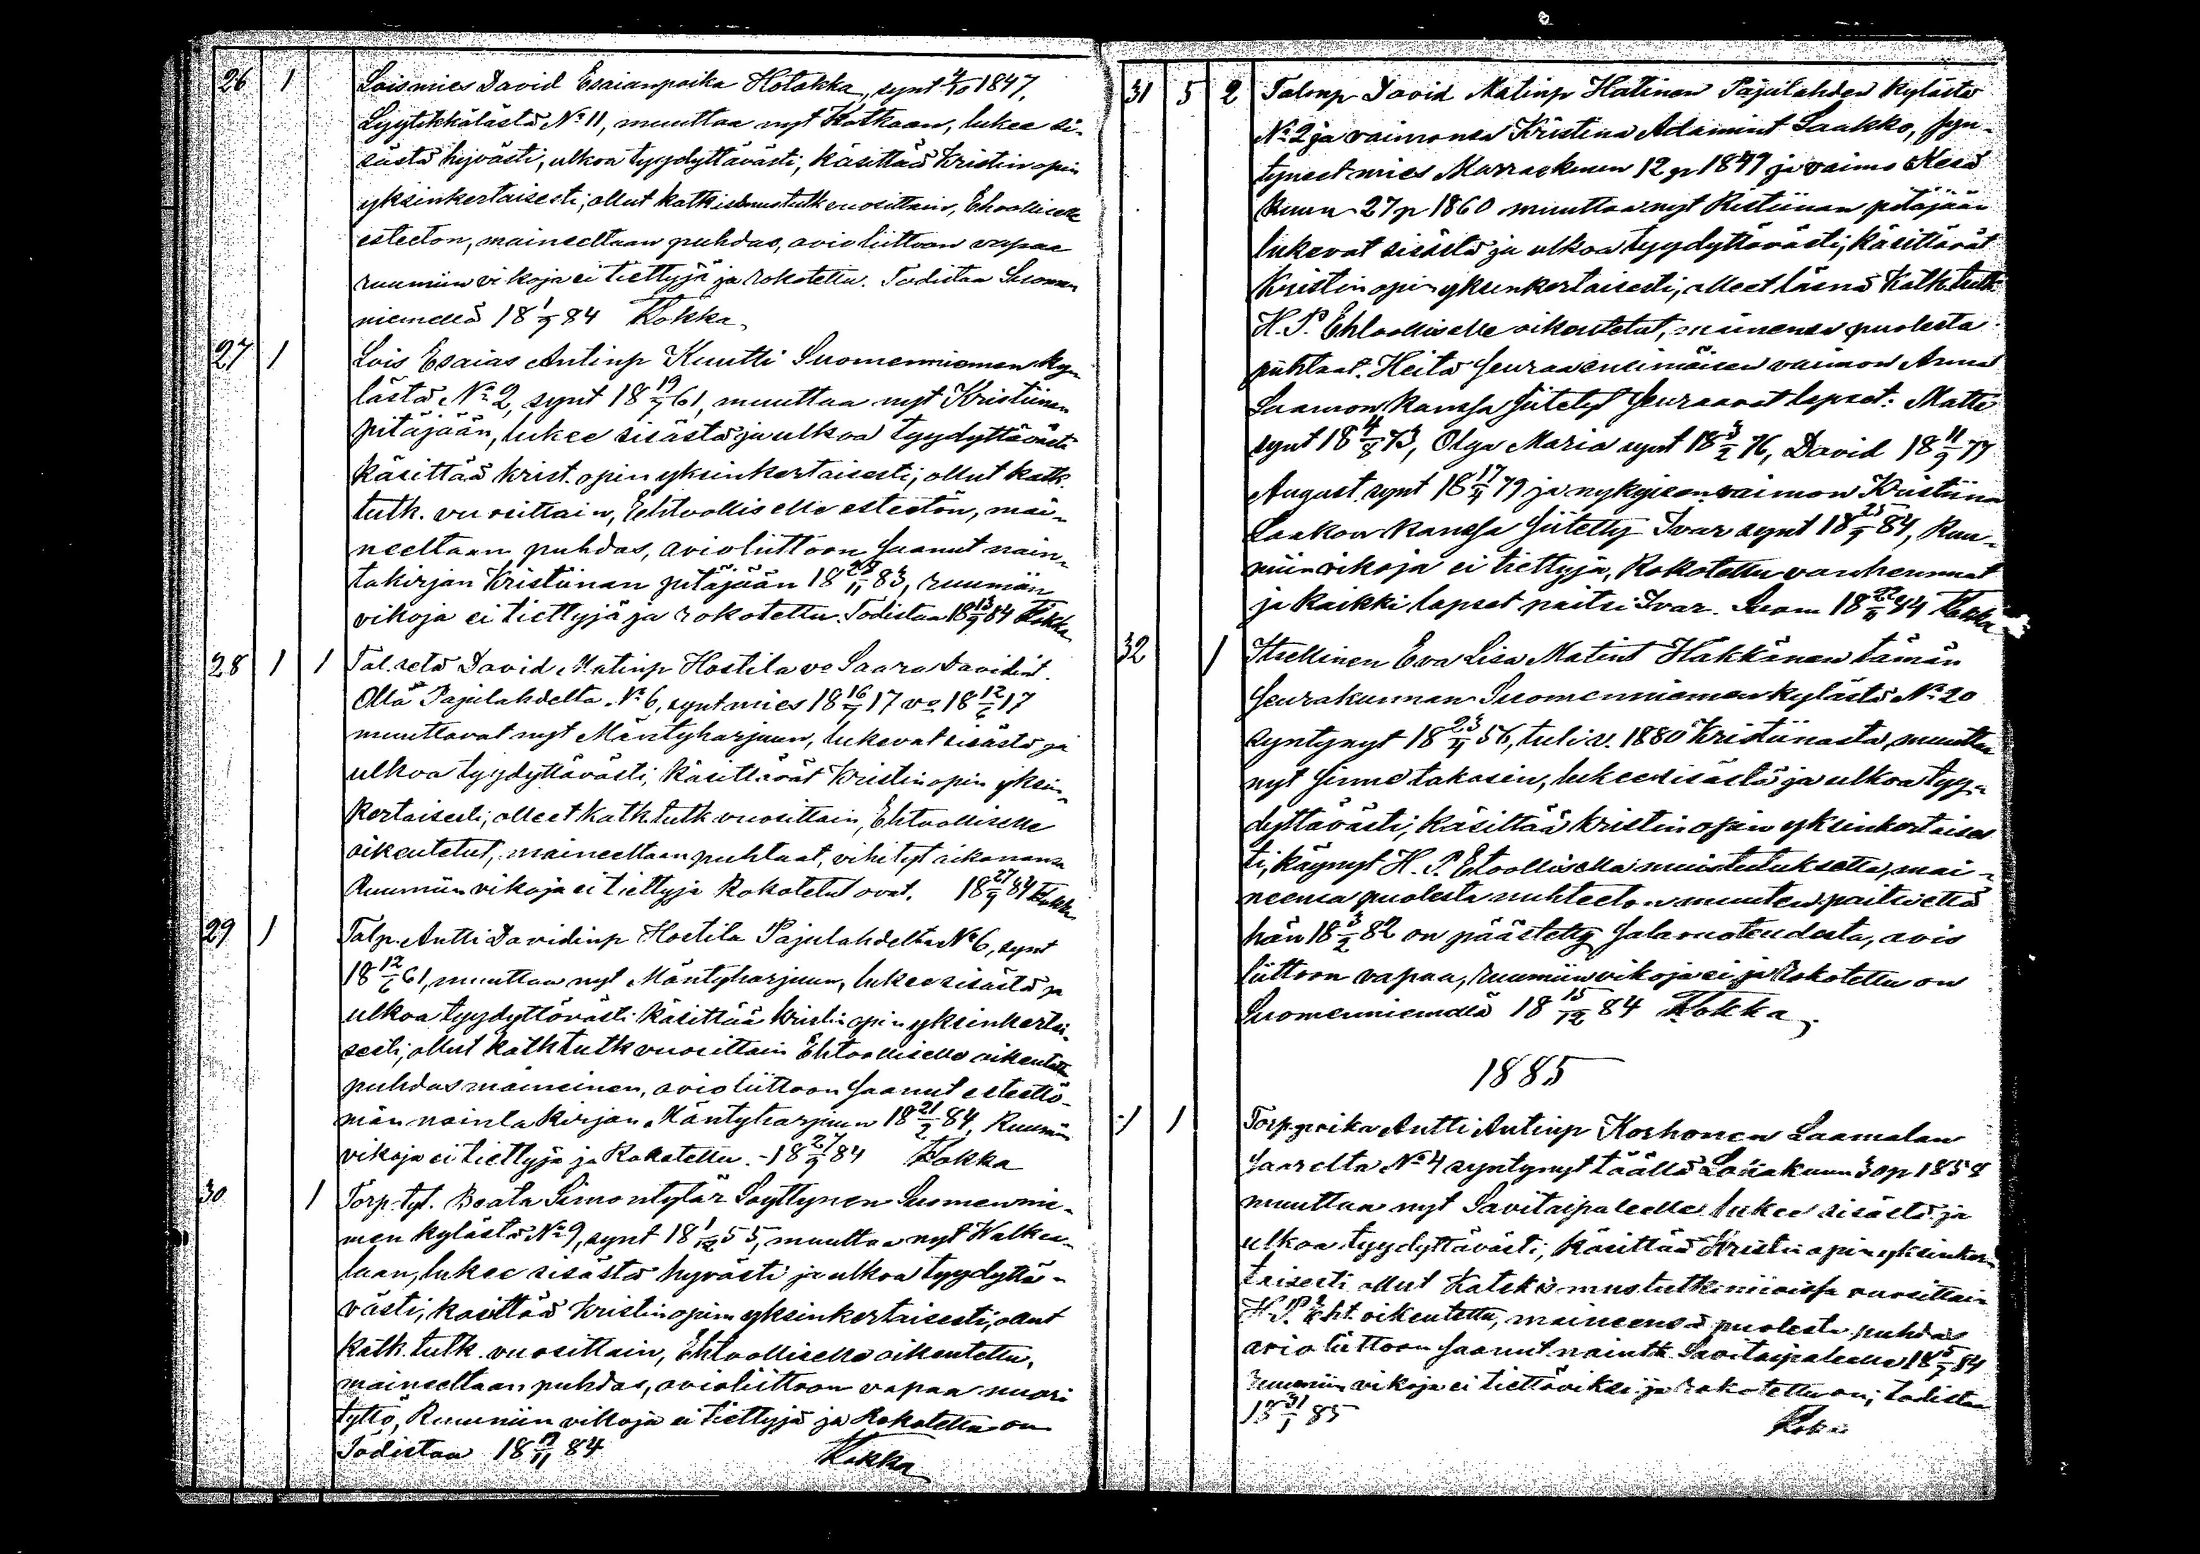 26 1 Loismies David Esaianpoika Hotakka, synt 1847,
Lyytikkälästä No 11, muuttaa nyt Kotkaan, lukee si-
sästä hyvästi, ulkoa tyydyttävästi; käsittää Kristin opin
yksinkertaisesti; ollut katkismustutk vuosittain, Ehtoolliselle
esteetön, maineeltaan puhdas, avioliittoon vapaa
ruumiin vikoja ei tiettyjä ja rokotettu. Todistaa Suomen
niemellä 18 1/9 84 Kokka.
27 1 Lois Esaias Antinp Kuutti Suomenniemen ky-
lästä No 2, synt 18 19/7 61, muuttaa nyt Kristiinan
pitäjään, lukee sisästä ja ulkoa tyydyttävästi
käsittää krist. opin yksinkertaisesti; ollut katk.
tutk. vuosittain, Ehtoolliselle esteetön, mai-
neeltaan puhdas, avioliittoon saanut nain-
takirjan Kristiinan pitäjään 18 28/11 83, ruumiin
vikoja ei tiettyjä ja rokotettu. Todistaa 18 13/9 84 Kokka
28 1 1 Tal. setä David Matinp Hostila vo Saara Davidint.
Ollä Pajulahdelta No 6, synt mies 18 16/7 17 vo 18 12/6 17
muuttavat nyt Mäntyharjuun, lukevat sisästä ja
ulkoa tyydyttävästi; käsittävät Kristin opin yksin-
kertaisesti; olleet katk. tutk vuosittain, Ehtoolliselle
oikeutetut, maineeltaan puhtaat, vihityt aikanansa
Ruumiin vikoja ei tiettyjä Rokotetut ovat. 18 27/9 84 Kokka
29 1 Talp. Antti Davidinp Hostila Pajulahdelta No 6, synt
18 12/6 61, muuttaa nyt Mäntyharjuun, lukee sisästä ja
ulkoa tyydyttävästi käsittää Kristin opin yksinkertai-
sesti; ollut katk tutk vuosittain Ehtoolliselle oikeutettu
puhdasmaineinen, avioliittoon saanut esteettö-
män nainta kirjan Mäntyharjuun 18 21/2 84, Ruumiin
vikoja ei tiettyjä ja Rokotettu. - 18 27/9 84 Kokka
30 1 Torp. tyt. Beata Simontytär Soyttynen Suomennie-
men kylästä No 9, synt 18 1/12 55, muuttaa nyt Walkea-
laan, lukee sisästä hyvästi ja ulkoa tyydyttä-
västi; käsittää Kristin opin yksinkertaisesti; ollut
katk. tutk. vuosittain, Ehtoolliselle oikeutettu,
maineeltaan puhdas, avioliittoon vapaa nuori
tyttö, Ruumiin vikoja ei tiettyjä ja Rokotettu on
Todistaa 84 Kokka
31 5 2 Talonp David Matinp Hatinen Pajulahden kylästä
No 2 ja vaimonsa Kristina Adamint Laakko, syn-
tyneet mies Marraskuun 12 p 1847 ja vaimo Kesä
kuun 27 p 1860 muuttaa nyt Ristiinan pitäjään
lukevat sisästä ja ulkoa tyydyttävästi; käsittävät
Kristin opin yksinkertaisesti; olleet läsnä Katk. tutk
H. P. Ehtoolliselle oikeutetut, mainensa puolesta
puhtaat. Heitä seuraa ensimäisen vaimon Anna
Laamon kanssa siitetyt seuraavat lapset: Matti
synt 18 4/8 73, Olga Maria synt 18 3/2 76, David 18 11/9 77
August synt 79 ja nykyisen vaimon Kristiina
Laakon kanssa siitetty Ivar synt 18 25/9 84, Ruu-
miin vikoja ei tiettyjä, Rokotettu vanhemmat
ja kaikki lapset paitsi Ivar. Suom 84 Kokka
32 1 Itsellinen Eva Lisa Matint Hakkänen tämän
seurakunnan Suomenniemen kylästä No 20
syntynyt 56, tuli v. 1880 Kristiinasta, muuttaa
nyt sinne takasin, lukee sisästä ja ulkoa tyy-
dyttävästi; käsittää kristin opin yksinkertaises
ti, käynyt H. P. Etoollisella muistutuksetta, mai-
neensa puolesta nuhteeton muuten paitsi että
hän 18 3/2 82 on päästetty salavuoteudesta, avio
liittoon vapaa, ruumiin vikoja ei ja Rokotettu on
Suomenniemellä 18 15/12 84 Kokka.
1885
1 1 Torp. poika Antti Antinp Korhonen Laamalan
saarelta No 4 syntynyt täällä Lokakuun 3 p 1858
muuttaa nyt Savitaipaleelle lukee sisästä ja
ulkoa tyydyttävästi; käsittää Kristin opin yksinker-
taisesti ollut Katekismustutkinnoissa vuosittain
H. P. Eht. oikeutettu, maineensa puolesta puhdas
avioliittoon saanut naintk. Savitaipaleelle 84
ruumiin vikoja ei tiettäviksi ja rokotettu on; todistaa
18 31/1 85 Kokka